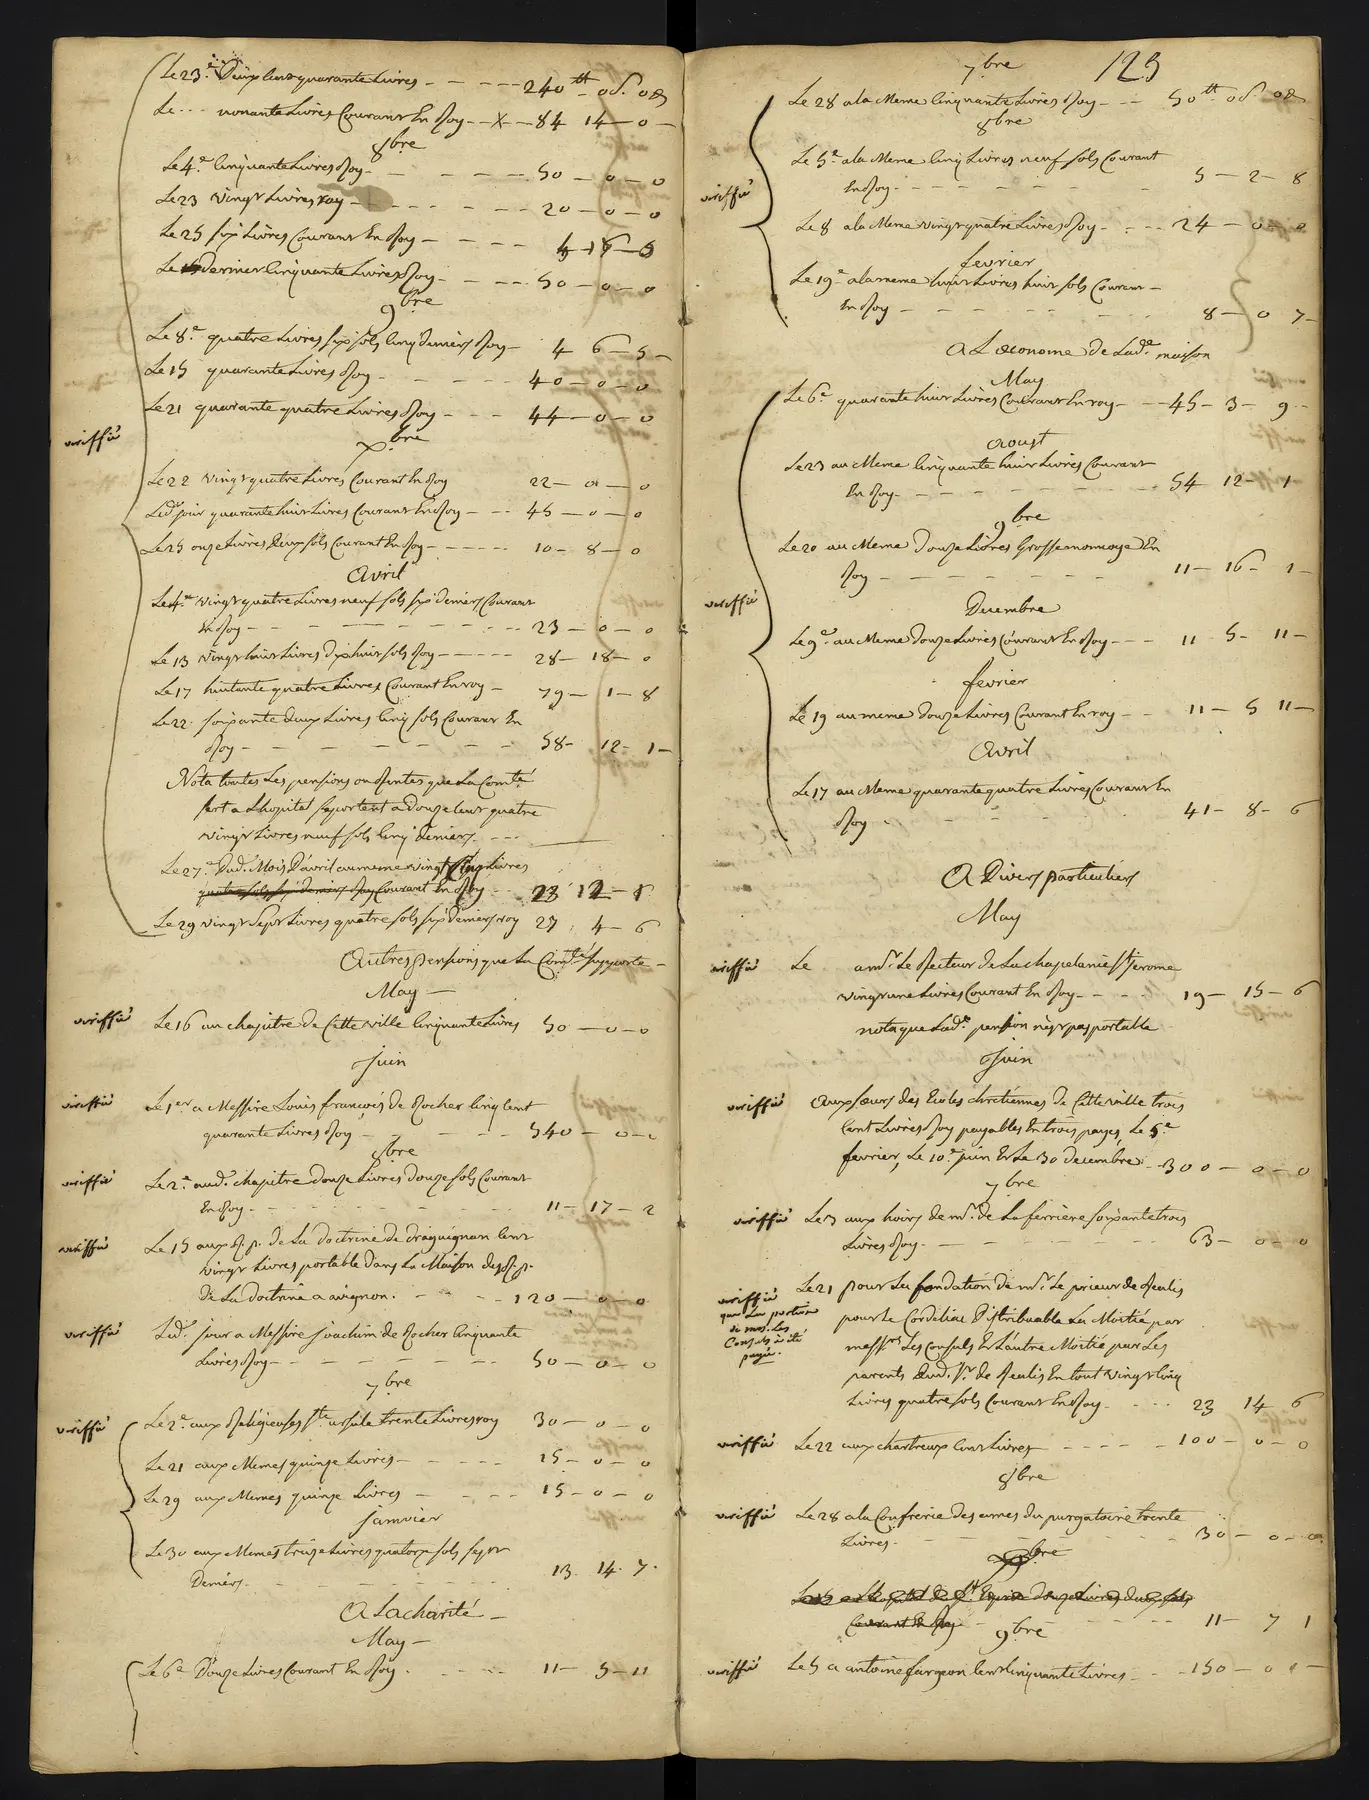 Le 23.e Deux cens quarante Livres - - - - 240 tt - 0 s. 0 d
Le ... nonante Livres Courant En Roy - - X - 84 14 - 0 -
8bre
Le 4.e Cinquante Livres Roy - - - - 50 - 0 - 0
Le 23 vingt Livres roy - - - - 20 - 0 - 0
Le 25 six Livres Courant En Roy - - - -
Le dernier Cinquante Livres Roy - - - - 50 - 0 - 0
9bre
Le 8.e quatre Livres six sols Cinq deniers Roy - 4 6 - 5 -
Le 15 quarante Livres Roy - - - - 40 - 0 - 0
Le 21 quarante quatre Livres Roy - - - 44 - 0 - 0
veriffié
xbre
Le 22 vingt quatre Livres Courant En Roy 22 - 0 - 0
Led. jour quarante huit Livres Courant En Roy - - 45 - 0 - 0
Le 25 onze Livres Deux sols Courant En Roy - - - - 10 - 8 - 0
Avril
Le 4.e vingt quatre Livres neuf sols six deniers Courant
En Roy - - - - 23 - 0 - 0
Le 13 vingt huit Livres dix huit sols Roy - - - - 28 - 18 - 0
Le 17 huitante quatre Livres Courant En roy - 79 - 1 - 8
Le 22 soixante deux Livres Cinq sols Courant En
Roy - - - - 58 - 12 - 1 -
Nota toutes Les pensions ou Rentes que La Comté
fait a Lhopital se portent a Douze cent quatre
vingt Livres neuf sols Cinq Deniers. - - -
Le 27.e Dud. Mois D'avril au meme vingt Cinq Livres
quatre sols six deniers Roy Courant En Roy - - 23 12 - 1
Le 29 vingt sept Livres quatre sols six deniers roy 27 . 4 - 6
Autres pensions que La Com.té supporte -
May -
veriffié Le 16 au chapitre de Cette ville Cinquante Livres 50 - 0 - 0
Juin
veriffié Le 1er a Messire Louis francois de Rocher Cinq Cent
quarante Livres Roy - - - - 540 - 0 - 0
8bre
veriffié Le 2.e aud. chapitre douze Livres douze sols Courant
En Roy - - - - 11 - 17 - 2
veriffié Le 15 aux R. p. de La doctrine de draguignan Cent
vingt Livres portable Dans La Maison des R. p.
De La doctrine a avignon. - - - 120 - 0 - 0
veriffié Led. jour a Messire Joachim de Rocher Cinquante
Livres Roy - - - - 50 - 0 - 0
7bre
veriffié Le 2.e aux Religieuses Ste ursule trente Livres roy 30 - 0 - 0
Le 21 aux Memes quinze Livres - - - - 15 - 0 - 0
Le 29 aux Memes quinze Livres - - - - 15 - 0 - 0
Janvier
Le 30 aux Memes treize Livres quatorze sols sept
Deniers - - - - 13 . 14 . 7 .
A La charité -
May -
Le 6e Douze Livres Courant En Roy . - - - - 11 - 5 - 11
7bre 125
Le 28 a la Meme Cinquante Livres Roy - - - 50 tt - 0 s. 0 d
8bre
Le 5.e a la Meme Cinq Livres neuf sols Courant
En Roy - - - - 5 - 2 - 8
veriffié
Le 8 a la Meme vingt quatre Livres Roy - - - - 24 - 0 - 0
fevrier
Le 19.e a la meme huit Livres huit sols Courant -
En Roy - - - - 8 - 0 7 -
A L'œconome de Lad.e maison
May
Le 6e quarante huit Livres Courant En roy - - 45 - 3 - 9 -
Aoust
Le 23 au Meme Cinquante huit Livres Courant
En Roy - - - - 54 12 - 1
9bre
Le 20 au Meme Douze Livres Grosse monnoye En
Roy - - - - 11 - 16 - 1 -
veriffié
Decembre
Le 9.e au Meme Douze Livres Courant En Roy - - - 11 - 5 - 11 -
fevrier
Le 19 au meme Douze Livres Courant En roy - - 11 - 5 11 -
Avril
Le 17 au Meme quarante quatre Livres Courant En
Roy - - - - 41 - 8 - 6
A Divers particuliers
May
veriffié Le a mr. Le Recteur de La chapelanie St Jerome
vingt une Livres Courant En Roy - - - - 19 - 15 - 6
nota que Lad.e pension n'est pas portable
Juin
veriffié Aux sœurs des Ecoles chretiennes de Cette ville trois
Cent Livres Roy payables En trois payes Le 5.e
fevrier, Le 10.e juin Et Le 30 decembre - 300 - 0 - 0
7bre
veriffié Le 3 aux hoirs de mr. de La ferriere soixante trois
Livres Roy - - - - 63 - 0 - 0
Le 21 pour La fondation de mr. Le prieur de Realis
veriffié
que La portion
de mrs. Les
Consuls a eté
payée.
pour le Cordelier Distribuable La Moitié par
messrs Les Consuls Et L'autre Moitié par Les
parents dud. Sr. de Realis En tout vingt Cinq
Livres quatre sols Courant En Roy - - - - 23 14 6
veriffié Le 22 aux chartreux Cent Livres - - - - 100 - 0 - 0
8bre
veriffié Le 28 a la Confrerie des ames du purgatoire trente
Livres - - - - 30 - 0 - 0
9bre
Le 15 a L'hopital du St Esprit Douze Livres deux sols
Courant En Roy - - - - 11 - 7 1
9bre
veriffié Le 5 a antoine fargeon Cent Cinquante Livres - - - 150 - 0 0 -